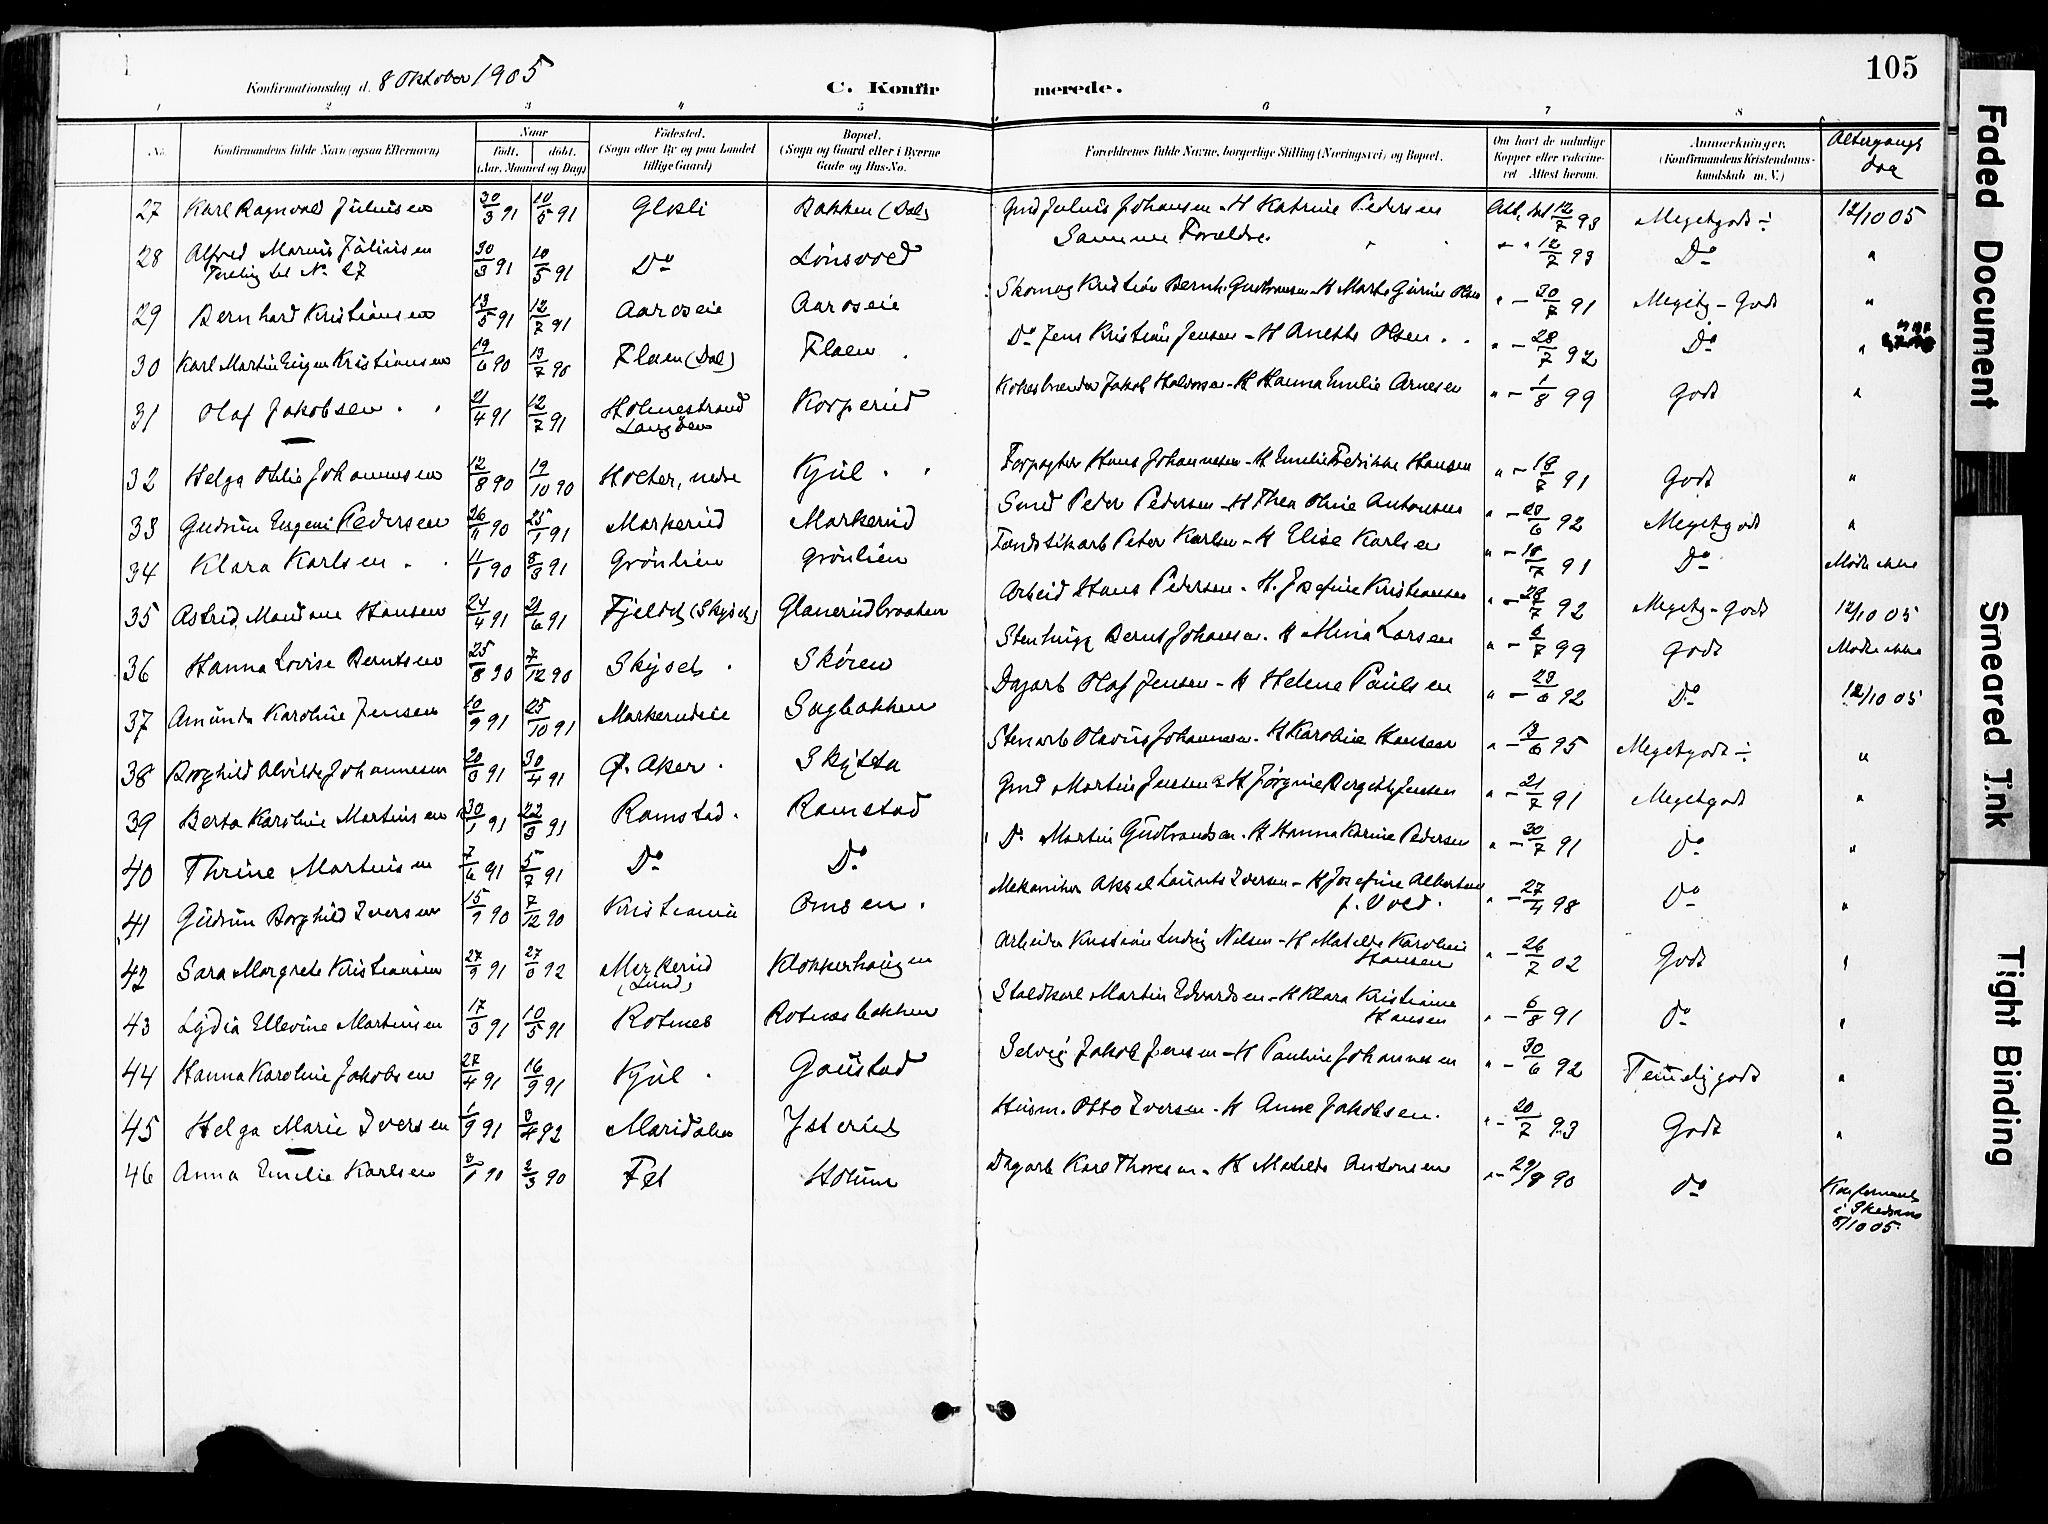 105
Konfirmationsdag d. 8 Oktober 1905
C. Konfirmerede.
1 2 3 4 5 6 7 8
No. Konfirmandens fulde Navn (ogsaa Efternavn) Naar Født. døbt. (Aar, Maaned og Dag) Fødested. (Sogn eller By og paa Landet tillige Gaard) Bopæl. (Sogn og Gaard eller i Byerne Gade og Hus-No. Forældrenes fulde Navne, borgerlige Stilling (Næringsvei) og Bopæl. Om havt de naturlige Kopper eller vaksineret Attest herom. Anmerkninger. (Konfirmandens Kristendomskundskab m. V.) Altergangs dag
27 Karl Ragnvald Juliusen 30/3 91 10/5 91 Bakken (Dal) Gmd Julius Johansen - H Katrine Pedersen Att. 12/7 93 Megetgodt ÷ 12/10 05
28 Alfred Marius Juliusen 30/3 91 10/5 91 Do Lönsvold Samme Forældre " " 12/7 93 Do "
Tvilling til No 27
29 Bernhard Kristiansen 13/5 91 12/7 91 Aaroseie Aaroseie Skomag Kristian Bernh. Gudbransen - H Marte Gurine Olsen " - 30/7 91 Megetg - Godt "
30 Karl Martin Eugen Kristiansen 19/6 90 13/7 90 Flaen (Dal) Flaen Do Jens Kristian Jensen - H Anette Olsen " - 28/7 92 Do "
31 Olaf Jakobsen 21/4 91 12/7 91 Holmestrand Langöen Korperud Jakob Halvorsen - H Hanna Emilie Arnesen " - 1/8 99 Godt "
32 Helga Otilie Johannesen 12/8 90 19/10 90 Holter, nedre Kjul Forpagter Hans Johannesen - H Emilie Fredrikke Hansen " - 18/7 91 Godt "
33 Gudrun Eugeni Pedersen 26/11 90 25/1 91 Markerud Markerud Smed Peder Pedersen - H Thea Oline Antonsen " - 20/6 92 Megetgodt "
34 Klara Karlsen 90 8/3 91 Grönlien Grönlien Peter Karlsen - H Elise Karlsen " - 18/7 91 Do Mødte ikke
35 Astrid Hansen 24/4 91 21/6 91 Glanerudbraaten Arbeid Hans Pedersen - H. Josefine Kristiansen " - 28/7 92 Megetg - Godt 12/10 05
36 Hanna Lovise Berntsen 25/8 90 7/12 90 Skyset Skören Bernt Johansen - H Mina Larsen " - 99 Godt Mødte ikke
37 Amunda Karoline Jensen 10/9 91 25/10 91 Markerudeie Sagbakken Dagarb Olaf Jensen - H Helene Paulsen " - 23/6 92 Do 12/10 05
38 Borghild Alvilde Johannesen 20/3 91 30/4 91 Ø. Aker Skytta Stenarb Olavus Johannesen - H Karoline Hansen " - 13/6 95 Megetgodt ÷ "
39 Berta Karoline Martinsen 30/1 91 22/3 91 Ramstad Ramstad Gmd Martin Jensen & H Jörgine Bergitte Jensen " - 21/7 91 Megetgodt "
40 Thrine Martinsen 7/6 91 5/7 91 Do Do Do Martin Gudbrandsen - H Hanna Karine Pedersen " - 30/7 91 Do "
41 Gudrun Borghild Iversen 15/9 90 7/12 90 Kristiania Omsen Mekaniker Aksel Laurits Iversen - H Josefine Albertine f. Vold " - 27/4 98 Do "
42 Sara Margrete Kristiansen 27/9 91 92 Merkerud (Lund) Klokkerhaugen Arbeider Kristian Ludvig Nilsen - H Matilde Karoline Hansen " - 26/7 02 Godt "
43 Lydia Ellevine Martinsen 17/3 91 10/5 91 Rotnes Rotnesbakken Staldkarl Martin Edvardsen - H Klara Kristiane Hansen " - 6/8 91 Do "
44 Hanna Karoline Jakobsen 27/4 91 16/9 91 Kjul Gaustad Selveig Jakob Jensen - H Pauline Johannesen " - 30/6 92 Temelig godt "
45 Helga Marie Iversen 1/9 91 3/4 92 Maridalen Ysterud Husm. Otto Iversen - H Anne Jakobsen. " - 20/7 93 Godt "
46 Anna Emilie Karlsen 90 2/3 90 Fet Holum Dagarb Karl Thoresen - H Matilde Antonsen " - 29/8 90 Do Konfirmert i Skedsmo 8/10 05.
Faded Document
Smeared Ink
Tight Binding